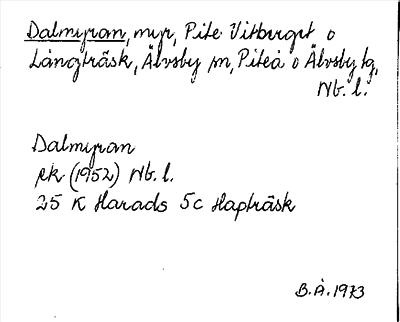 Dalmyran, myr, Pite Vitberget o
Långträsk, Älvsby sn, Piteå o Älvsby tg,
Nb. l.
Dalmyran
ek (1952) Nb. l.
25 K Harads 5c Hapträsk
B.Å. 1973